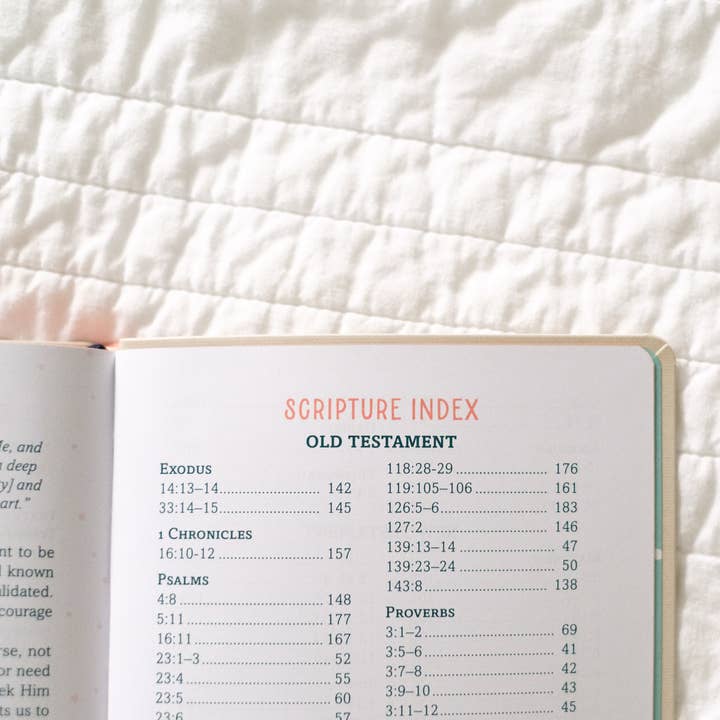 Me, and
a deep
y] and
art.”
nt to be
known
lidated.
courage
rse, not
or need
ek Him
ts us to
SCRIPTURE INDEX
OLD TESTAMENT
EXODUS
14:13–14 142
33:14–15 145
1 CHRONICLES
16:10-12 157
PSALMS
4:8 148
5:11 177
16:11 167
23:1–3 52
23:4 55
23:5 60
23:6 57
118:28-29 176
119:105–106 161
126:5–6 183
127:2 146
139:13–14 47
139:23–24 50
143:8 138
PROVERBS
3:1–2 69
3:5–6 41
3:7–8 42
3:9–10 43
3:11–12 45